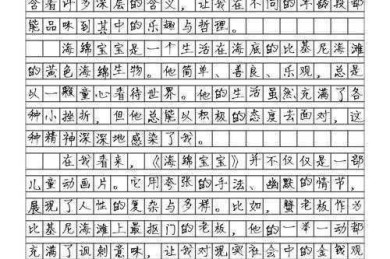 含着许多深层的含义，让我在不同的年龄段都
能品味到其中的乐趣与哲理。
海绵宝宝是一个生活在海底的比基尼海滩
的黄色海绵生物。他简单、善良、乐观，总是
以一颗童心看待世界。他的生活虽然充满了各
种小挫折，但他总能以积极的态度去面对，这
种精神深深地感染了我。
在我看来，《海绵宝宝》并不仅仅是一部
儿童动画片。它用夸张的手法、幽默的情节，
展现了人性的复杂与多样。比如，蟹老板作为
比基尼海滩上最抠门的老板，他的一举一动都
充满了讽刺意味，让我对现实社会中的金钱观